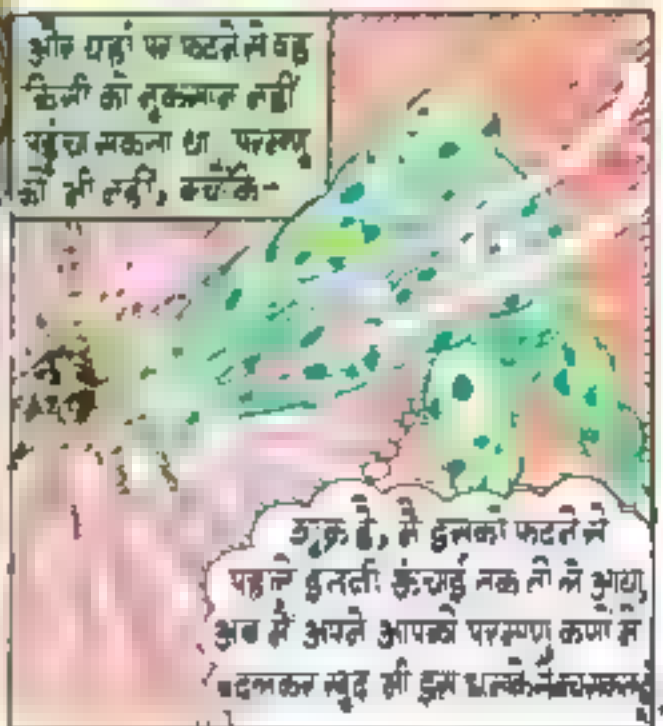 और यहां पर फटने से वह
किसी को नुकसान नहीं
पहुंचा सकता था परमाणु
को भी नहीं, क्योंकि-
शुक्र है, मैं इसको फटने से
पहले इतनी ऊंचाई तक तो ले आया,
अब मैं अपने आपको परमाणु कणों में
बदलकर खुद भी इस धमाके से